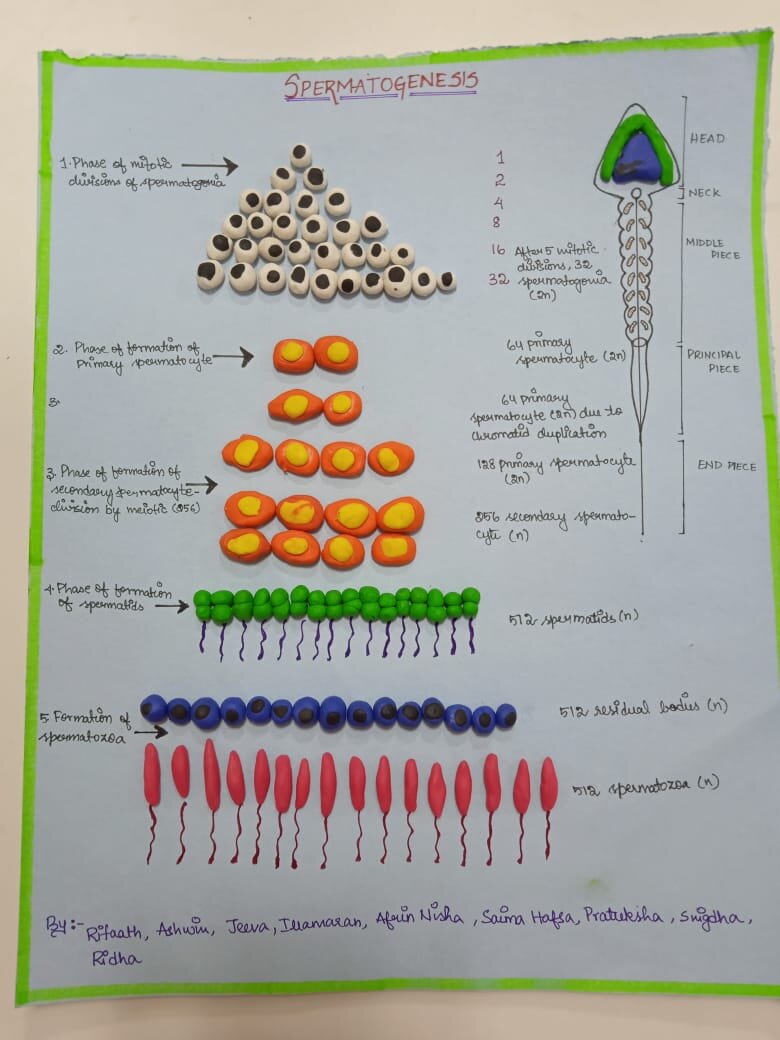 SPERMATOGENESIS
1. Phase of mitotic
divisions of spermatogonia
1
2
4
8
16 After 5 mitotic
divisions, 32
32 spermatogonia
(2n)
HEAD
NECK
MIDDLE
PIECE
PRINCIPAL
PIECE
END PIECE
2. Phase of formation of
Primary spermatocyte
64 primary
spermatocyte (2n)
3.
64 primary
spermatocyte (2n) due to
chromatid duplication
3. Phase of formation of
secondary spermatocyte-
division by meiotic (256)
128 primary spermatocyte
(2n)
256 secondary spermato-
cyte (n)
4. Phase of formation
of spermatids
512 spermatids (n)
5. Formation of
spermatozoa
512 residual bodies (n)
512 spermatozoa (n)
By:- Rifaath, Ashwin, Jeeva, Ilamaran, Afrin Nisha, Saima Hafsa, Pratieksha, Snigdha,
Ridha